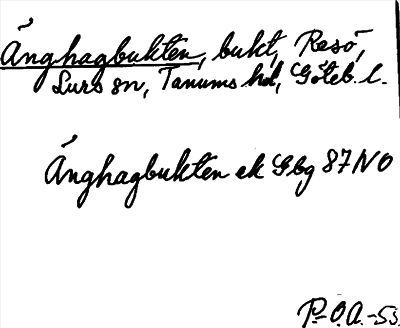 Änghagbukten, bukt, Resö,
Lurs sn, Tanums hd, Göteb. l.
Änghagbukten ek Gbg 87 NO
P-O.A.-53